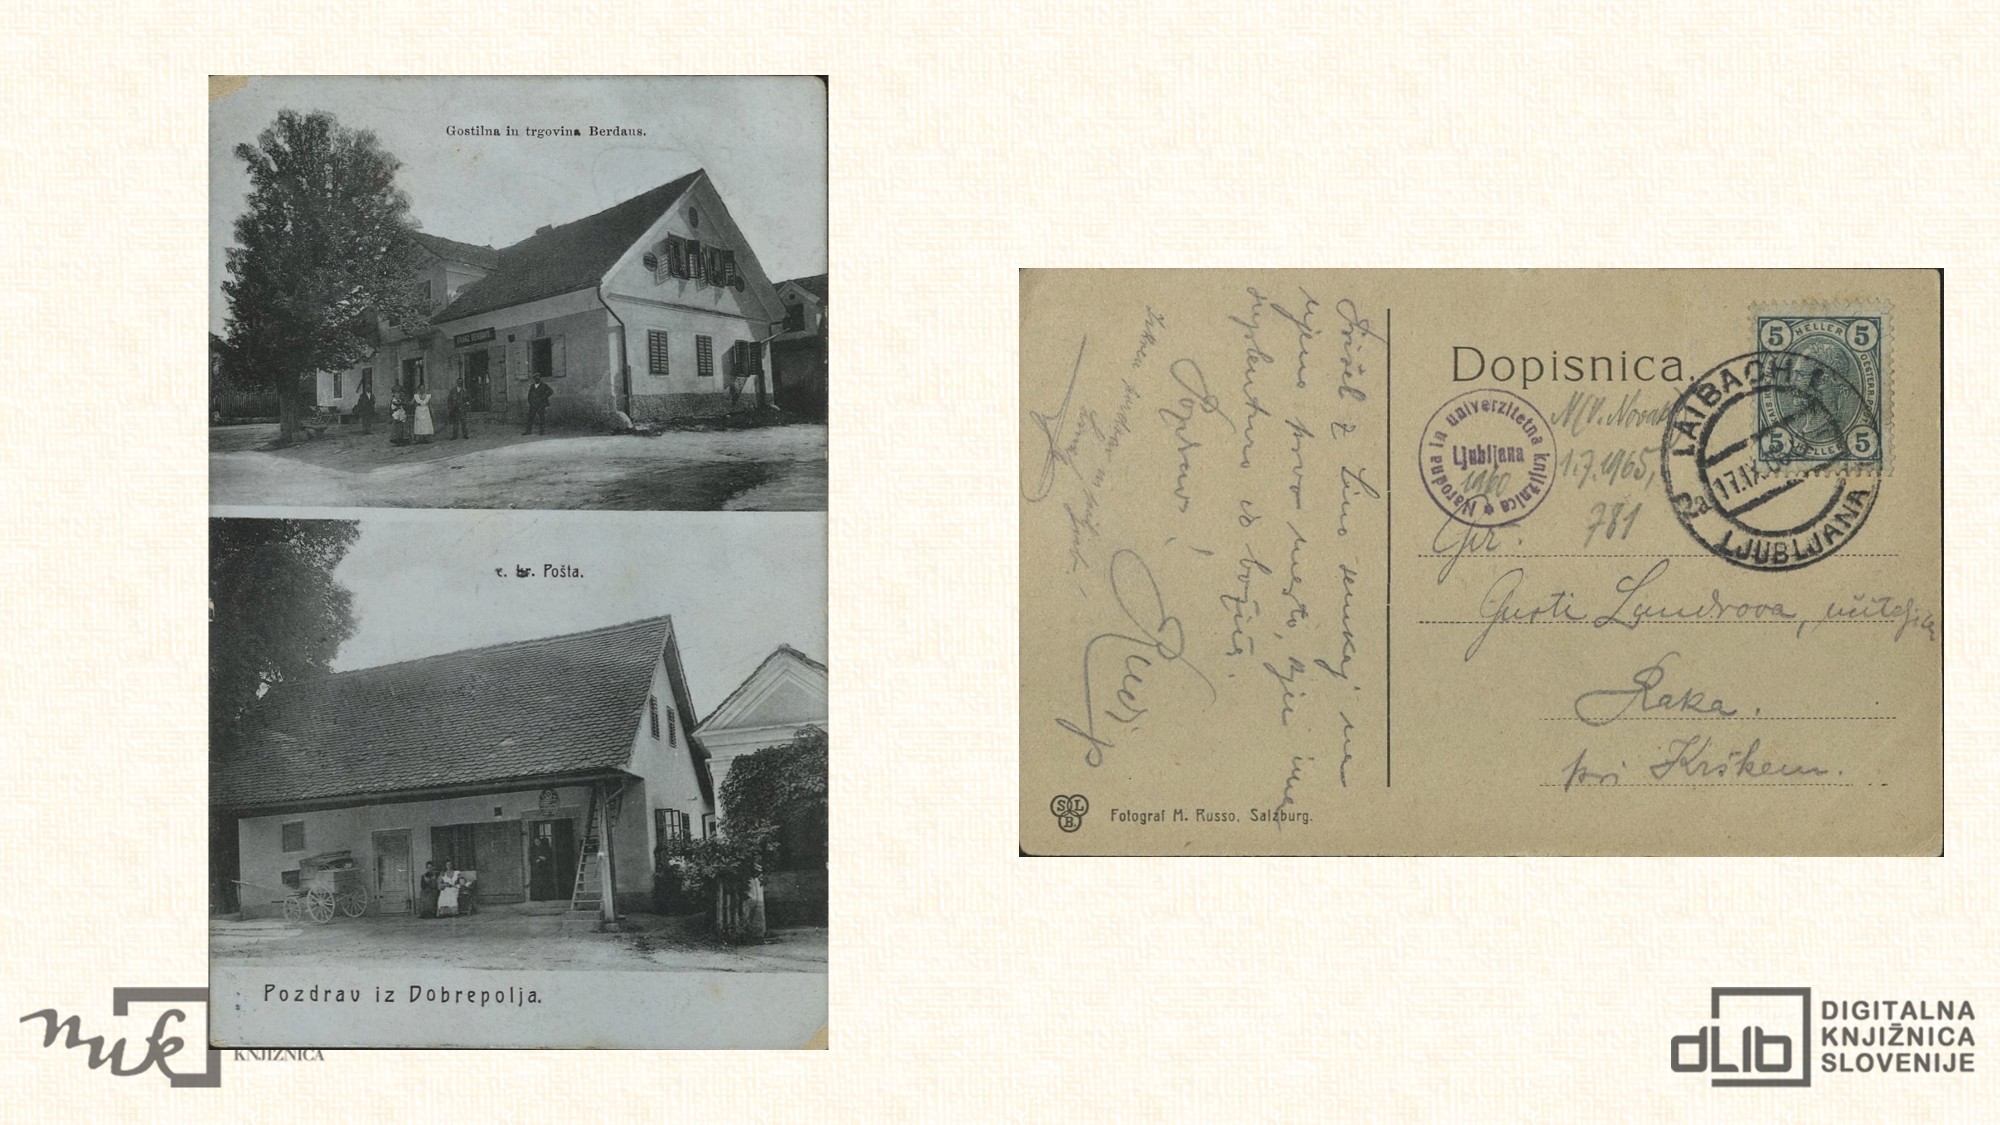 Gostilna in trgovina Berdaus.
c. kr. Pošta.
Pozdrav iz Dobrepolja.
Dopisnica.
5 HELLER 5
5 HELLER 5
LAIBACH 1
17.IX.
2a
LJUBLJANA
Narodna in univerzitetna knjižnica
Ljubljana
M. Novak
1.7.1965,
781
Gdč.
Gusti Landrova, učiteljica
Raka.
pri Krškem.
Prišel z Lino semkaj na
njeno prvo mesto, njen ima
suplentura do božiča
Pozdrav!
Rudi
SLB
Fotograf M. Russo, Salzburg.
nuk
KNJIŽNICA
dLib
DIGITALNA
KNJIŽNICA
SLOVENIJE